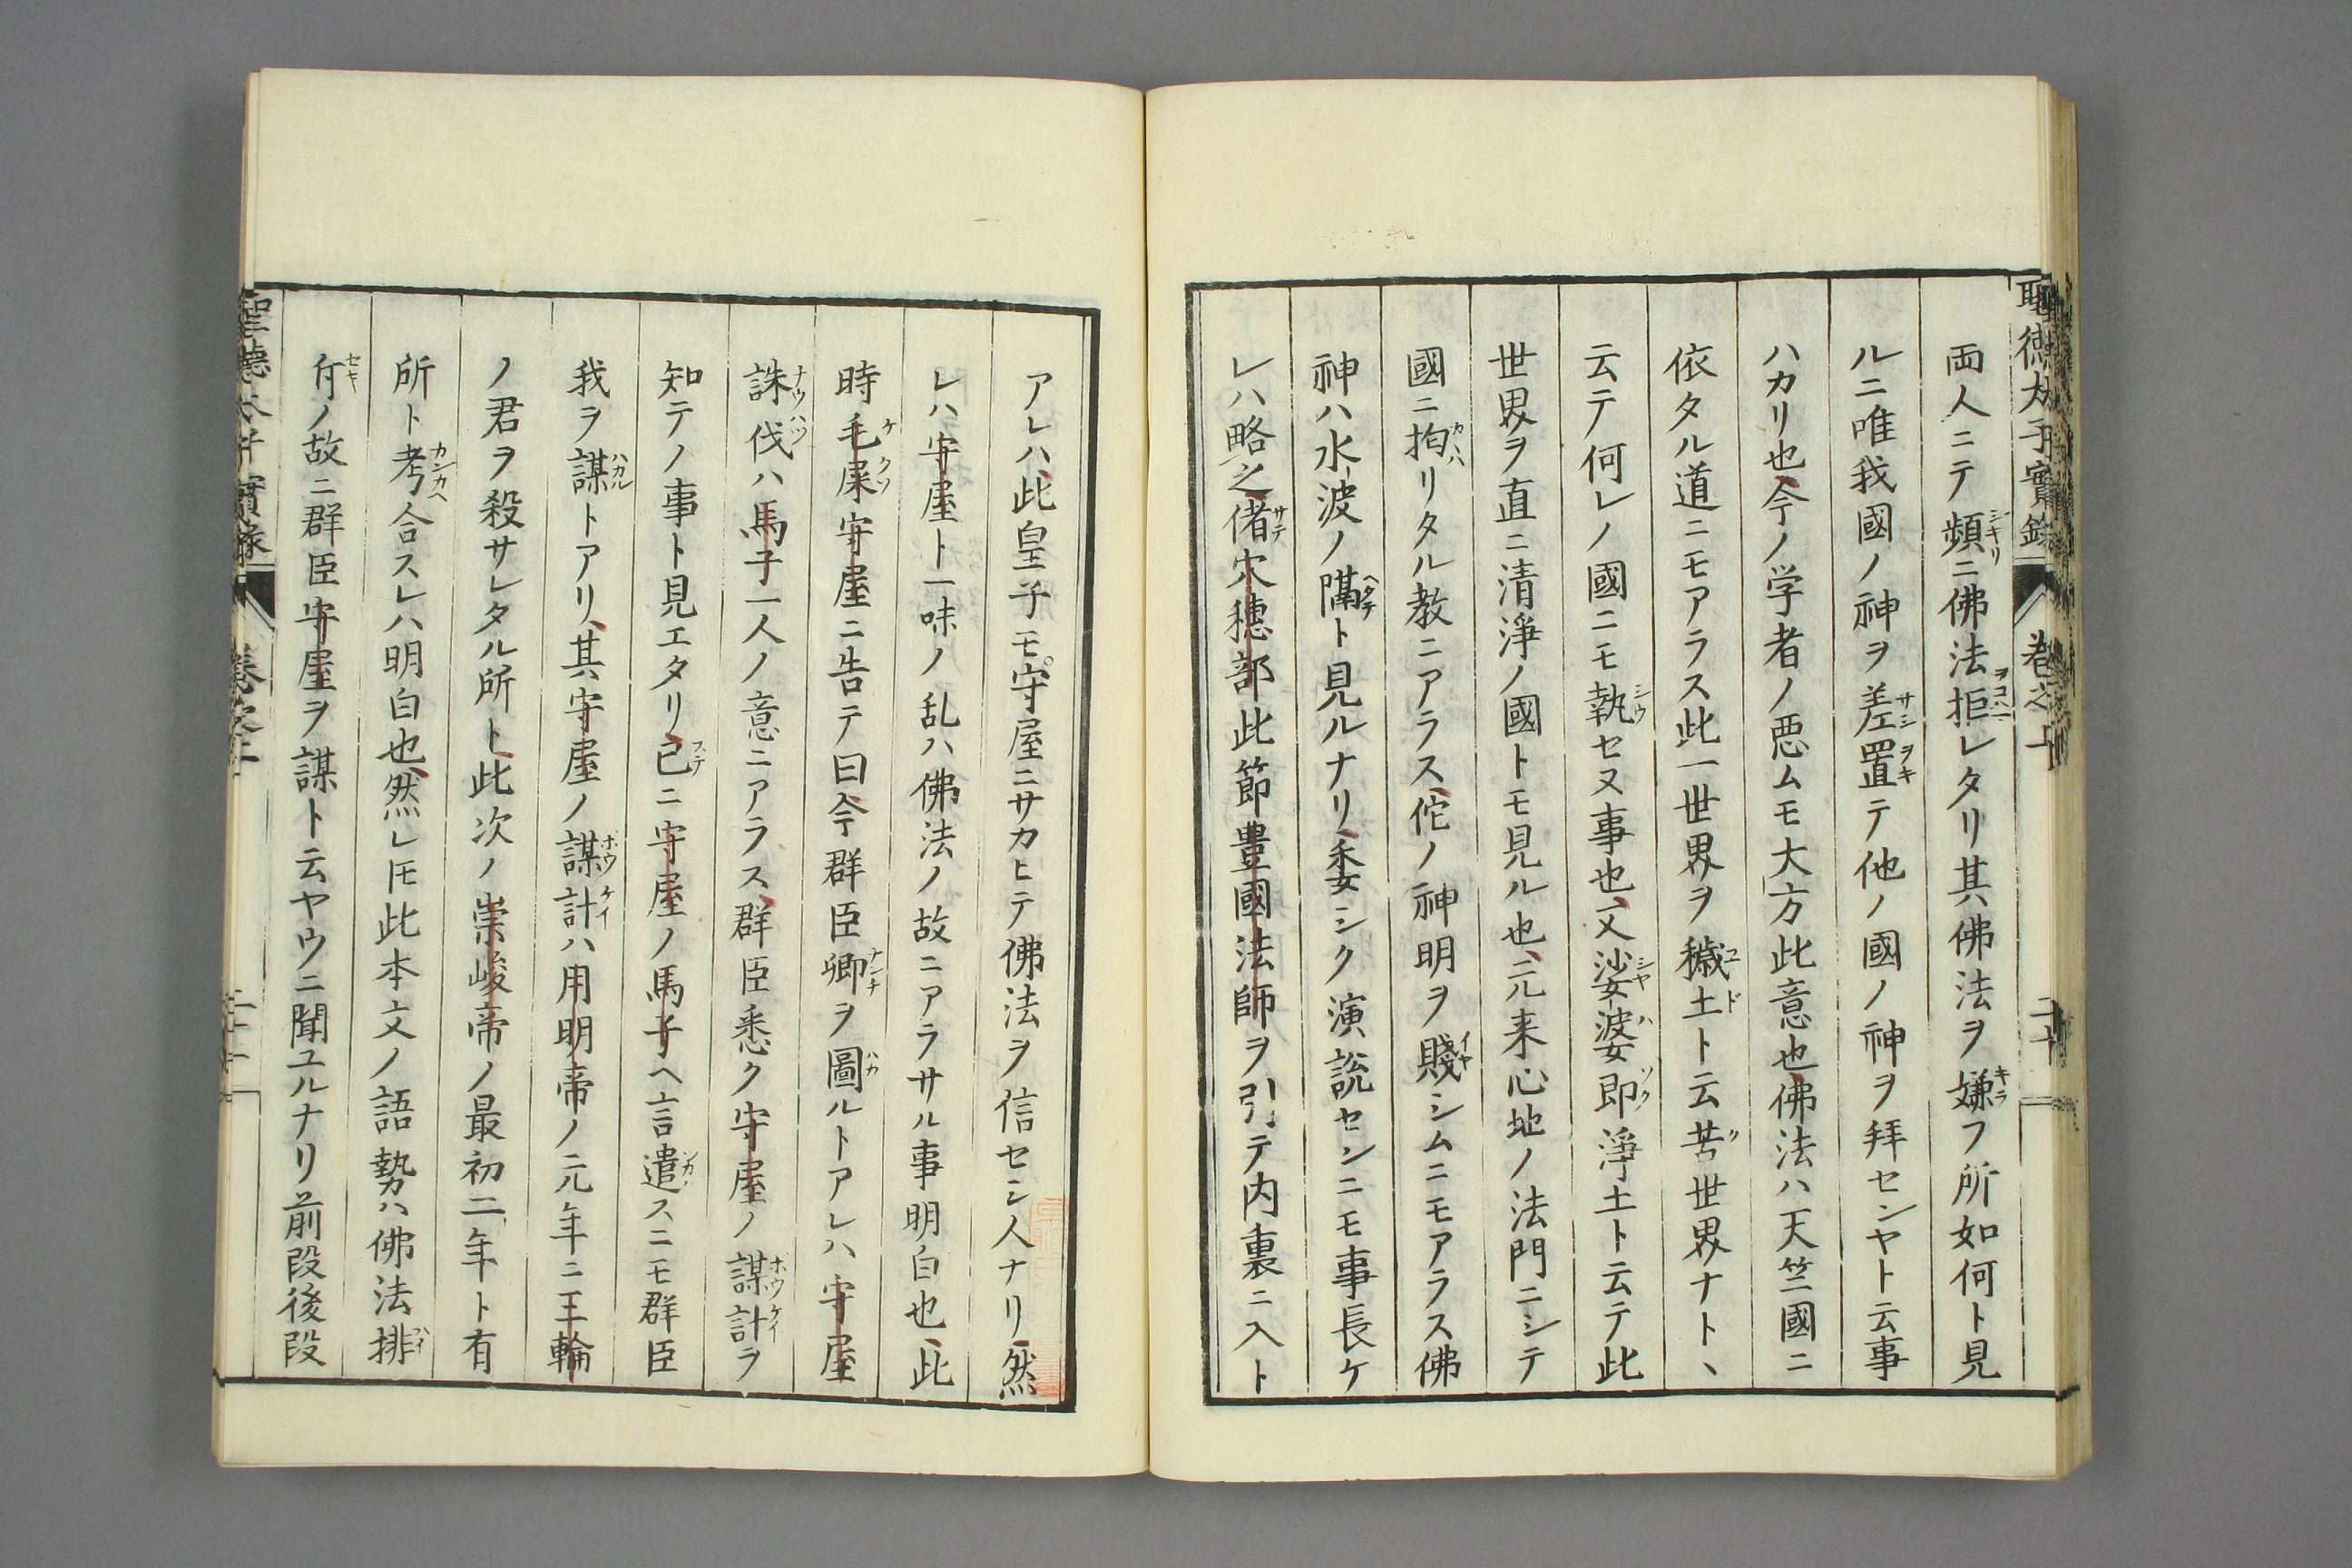 両人ニテ頻ニ佛法拒レタリ其佛法ヲ嫌フ所如何ト見
ルニ唯我國ノ神ヲ差置テ他ノ國ノ神ヲ拜センヤト云事
ハカリ也今ノ学者ノ悪ムモ大方此意也佛法ハ天竺國ニ
依タル道ニモアラス此一世界ヲ穢土ト云苦世界ナト丶
云テ何レノ國ニモ執セヌ事也又娑婆即淨土ト云テ此
世界ヲ直ニ清淨ノ國トモ見ル也元来心地ノ法門ニシテ
國ニ拘リタル教ニアラス佗ノ神明ヲ賤シムニモアラス佛
神ハ水波ノ隔ト見ルナリ委シク演説センニモ事長ケ
レハ略之偖穴穗部此節豊國法師ヲ引テ内裏ニ入ト
アレハ此皇子モ守屋ニサカヒテ佛法ヲ信セシ人ナリ然
レハ守屋ト一味ノ乱ハ佛法ノ故ニアラサル事明白也此
時毛屎守屋ニ告テ曰今群臣卿ヲ圖ルトアレハ守屋
誅伐ハ馬子一人ノ意ニアラス群臣悉ク守屋ノ謀計ヲ
知テノ事ト見エタリ已ニ守屋ノ馬子ヘ言遣スニモ群臣
我ヲ謀トアリ其守屋ノ謀計ハ用明帝ノ元年ニ三輪
ノ君ヲ殺サレタル所ト此次ノ崇峻帝ノ最初二年ト有
所ト考合スレハ明白也然レ𪜈此本文ノ語勢ハ佛法排
斥ノ故ニ群臣守屋ヲ謀ト云ヤウニ聞ユルナリ前段後段
聖德太子實錄 卷之